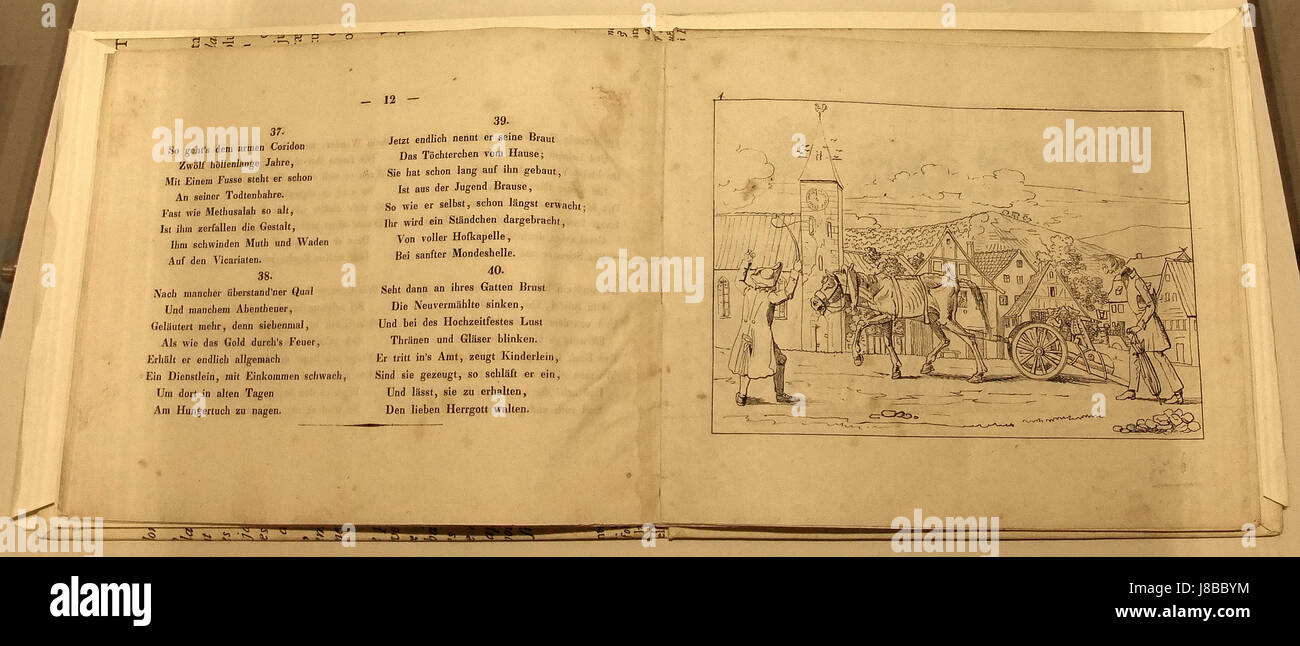 — 12 —
37.
So geht's dem armen Coridon
Zwölf höllenlange Jahre,
Mit Einem Fusse steht er schon
An seiner Todtenbahre.
Fast wie Methusalah so alt,
Ist ihm zerfallen die Gestalt,
Ihm schwinden Muth und Waden
Auf den Vicariaten.
38.
Nach mancher überstand'ner Qual
Und manchem Abentheuer,
Geläutert mehr, denn siebenmal,
Als wie das Gold durch's Feuer,
Erhält er endlich allgemach
Ein Dienstlein, mit Einkommen schwach,
Um dort in alten Tagen
Am Hungertuch zu nagen.
39.
Jetzt endlich nennt er seine Braut
Das Töchterchen vom Hause;
Sie hat schon lang auf ihn gebaut,
Ist aus der Jugend Brause,
So wie er selbst, schon längst erwacht;
Ihr wird ein Ständchen dargebracht,
Von voller Hofkapelle,
Bei sanfter Mondeshelle.
40.
Seht dann an ihres Gatten Brust
Die Neuvermählte sinken,
Und bei des Hochzeitfestes Lust
Thränen und Gläser blinken.
Er tritt in's Amt, zeugt Kinderlein,
Sind sie gezeugt, so schläft er ein,
Und lässt, sie zu erhalten,
Den lieben Herrgott walten.
4.
a alamy stock photo
J8BBYM
www.alamy.com